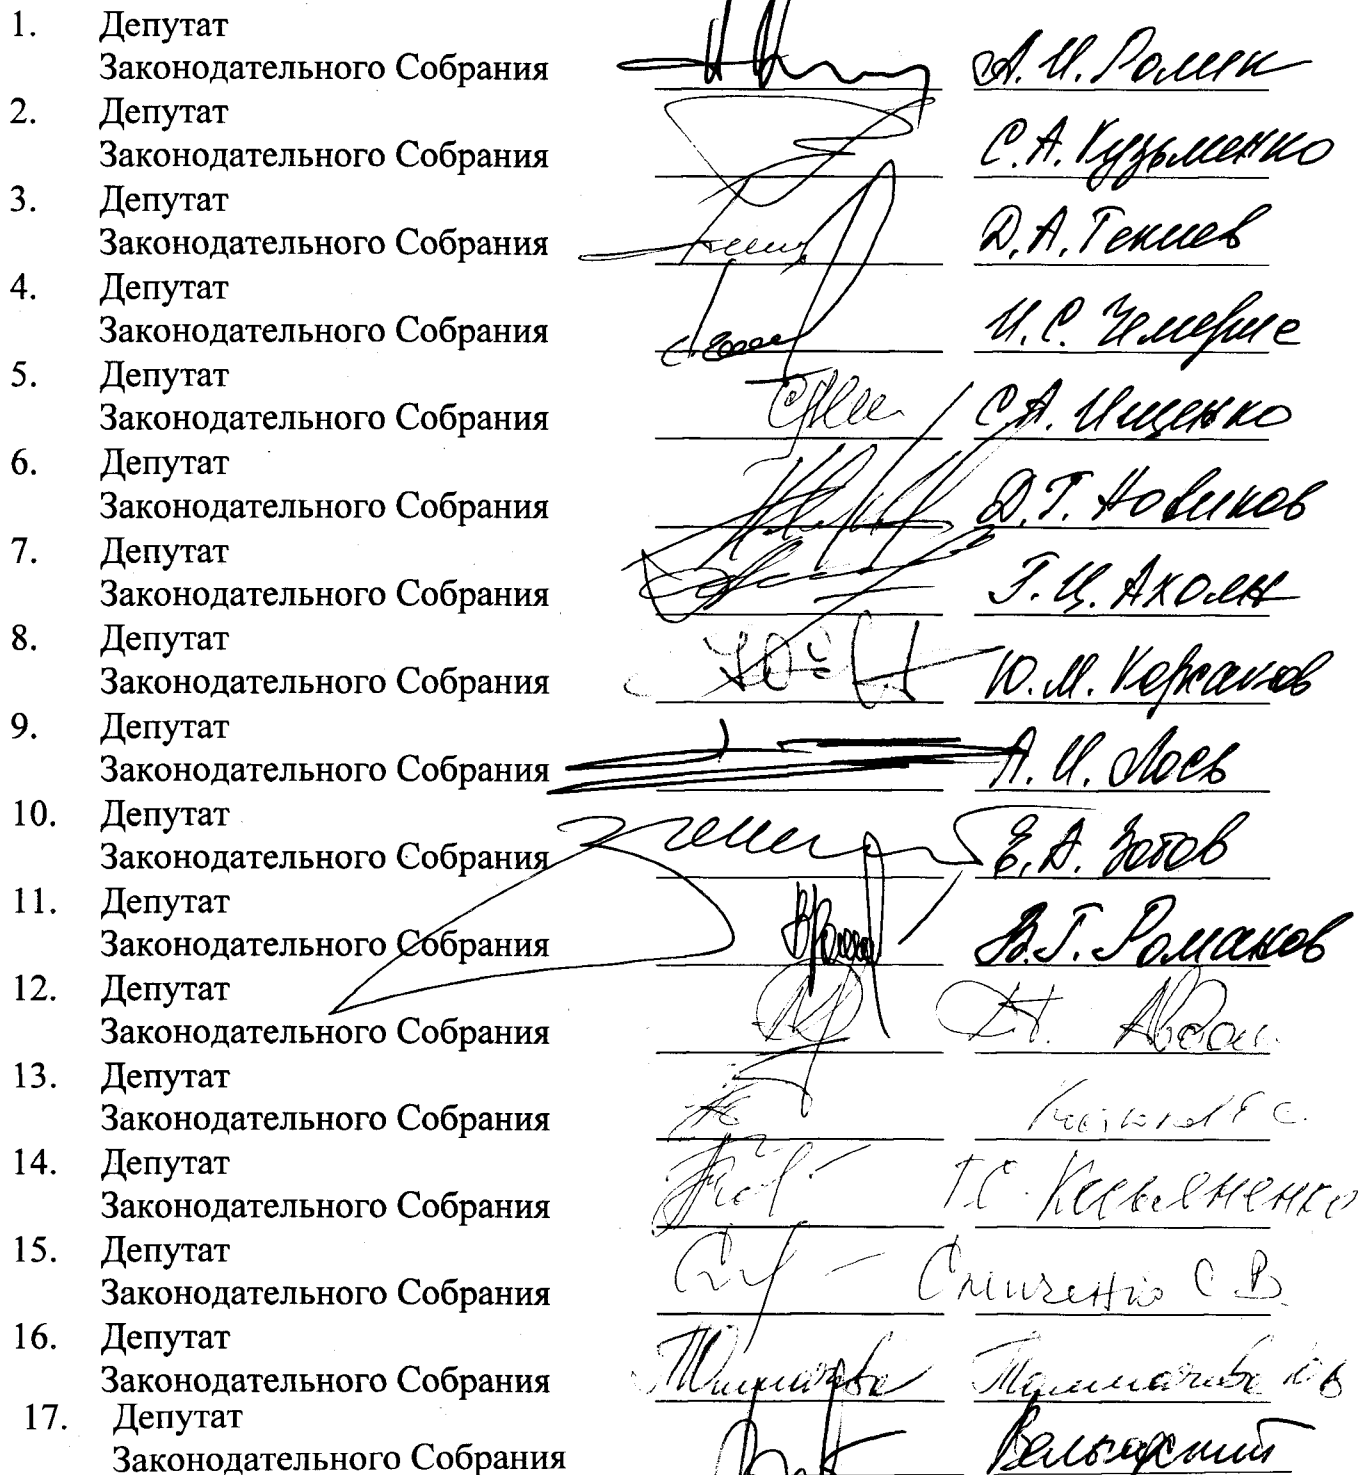 1. Депутат
Законодательного Собрания А. И. Ролик
2. Депутат
Законодательного Собрания С. А. Кузьменко
3. Депутат
Законодательного Собрания Д. А. Текиев
4. Депутат
Законодательного Собрания И. С. Чемерис
5. Депутат
Законодательного Собрания С. А. Ищенко
6. Депутат
Законодательного Собрания Д. Г. Новиков
7. Депутат
Законодательного Собрания Г. Ц. Ахоян
8. Депутат
Законодательного Собрания Ю. М. Корсаков
9. Депутат
Законодательного Собрания А. И. Лось
10. Депутат
Законодательного Собрания Е. А. Зотов
11. Депутат
Законодательного Собрания В. Г. Романов
12. Депутат
Законодательного Собрания
13. Депутат
Законодательного Собрания
14. Депутат
Законодательного Собрания
15. Депутат
Законодательного Собрания С В.
16. Депутат
Законодательного Собрания
17. Депутат
Законодательного Собрания